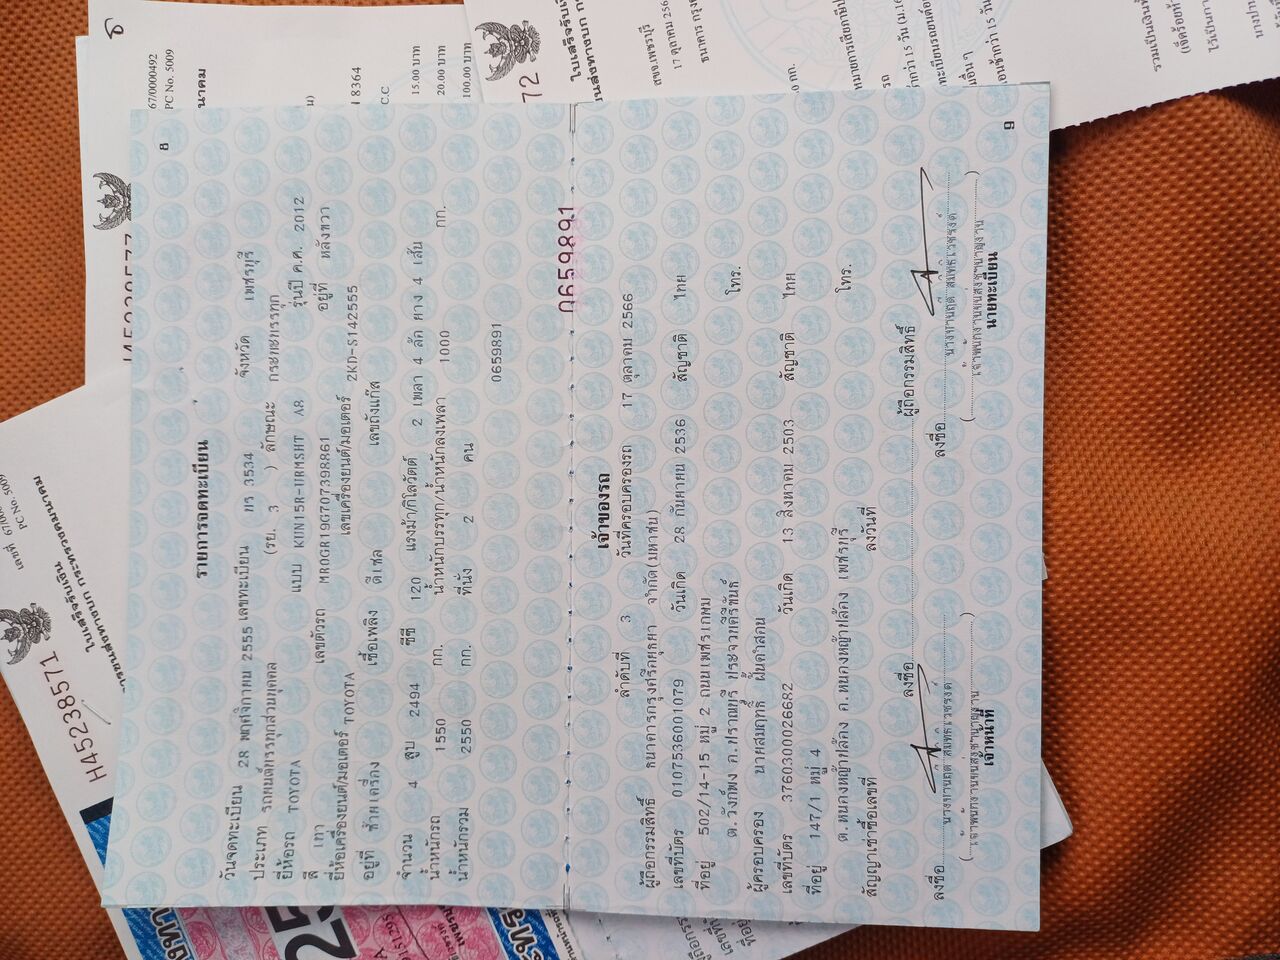 8
รายการจดทะเบียน
วันจดทะเบียน 28 พฤศจิกายน 2555 เลขทะเบียน 3534 จังหวัด เพชรบุรี
ประเภท รถยนต์บรรทุกส่วนบุคคล (รย. 3 ) ลักษณะ กระบะบรรทุก
ยี่ห้อรถ TOYOTA แบบ KUN15R-URMSHT A8 รุ่นปี ค.ศ. 2012
สี เทา เลขตัวรถ MR0GR19G707398861 อยู่ที่ หลังขวา
ยี่ห้อเครื่องยนต์/มอเตอร์ TOYOTA เลขเครื่องยนต์/มอเตอร์ 2KD-S142555
อยู่ที่ ซ้ายเครื่อง เชื้อเพลิง ดีเซล เลขถังแก๊ส
จำนวน 4 สูบ 2494 ซีซี 120 แรงม้า/กิโลวัตต์ 2 เพลา 4 ล้อ ยาง 4 เส้น
น้ำหนักรถ 1550 กก. น้ำหนักบรรทุก/น้ำหนักลงเพลา 1000 กก.
น้ำหนักรวม 2550 กก. ที่นั่ง 2 คน
0659891
0659891
เจ้าของรถ
ลำดับที่ 3 วันที่ครอบครองรถ 17 ตุลาคม 2566
ผู้ถือกรรมสิทธิ์ ธนาคารกรุงศรีอยุธยา จำกัด(มหาชน)
เลขที่บัตร 0107536001079 วันเกิด 28 กันยายน 2536 สัญชาติ ไทย
ที่อยู่ 502/14-15 หมู่ 2 ถนนเพชรเกษม
ต.วังก์พง อ.ปราณบุรี ประจวบคีรีขันธ์ โทร.
ผู้ครอบครอง นายสมฤทธิ์
เลขที่บัตร 3760300026682 วันเกิด 13 สิงหาคม 2503 สัญชาติ ไทย
ที่อยู่ 147/1 หมู่ 4
ต.หนองหญ้าปล้อง อ.หนองหญ้าปล้อง เพชรบุรี โทร.
สัญญาเช่าซื้อเลขที่ ลงวันที่
ลงชื่อ ผู้ถือกรรมสิทธิ์
ลงชื่อ ลงชื่อ
เจ้าหน้าที่ นายทะเบียน
9
H45238571
ใบเสร็จรับเงิน
PC No. 5009
67000492
15.00 บาท
20.00 บาท
100.00 บาท
8364
C.C
สขจ.เพชรบุรี